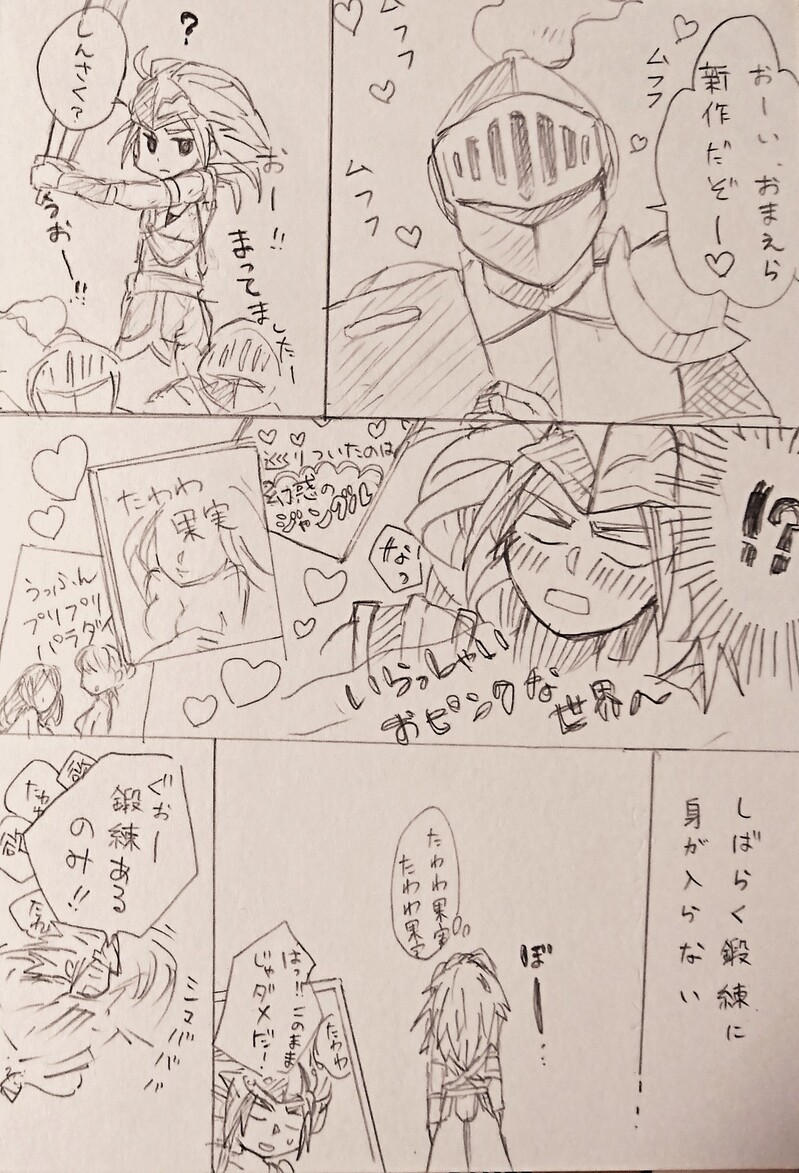 おーい、おまえら
新作だぞー♡
ムフフ
ムフフ
ムフフ
?
しんさく?
おー!!
まってましたー
うおー!!
!?
なっ
辿りついたのは
幻惑の
ジャングル
たわわ
果実
うっふん
プリプリ
パラダイ
いらっしゃい
おピンクな世界へ
しばらく鍛練に
身が入らない
……
ぼー…
たわわ果実
たわわ果実
はっ!!このまま
じゃダメだー!
たわわ
ぐぉー
鍛練ある
のみ!!
欲
たわわ
欲
たわ
シュババババ